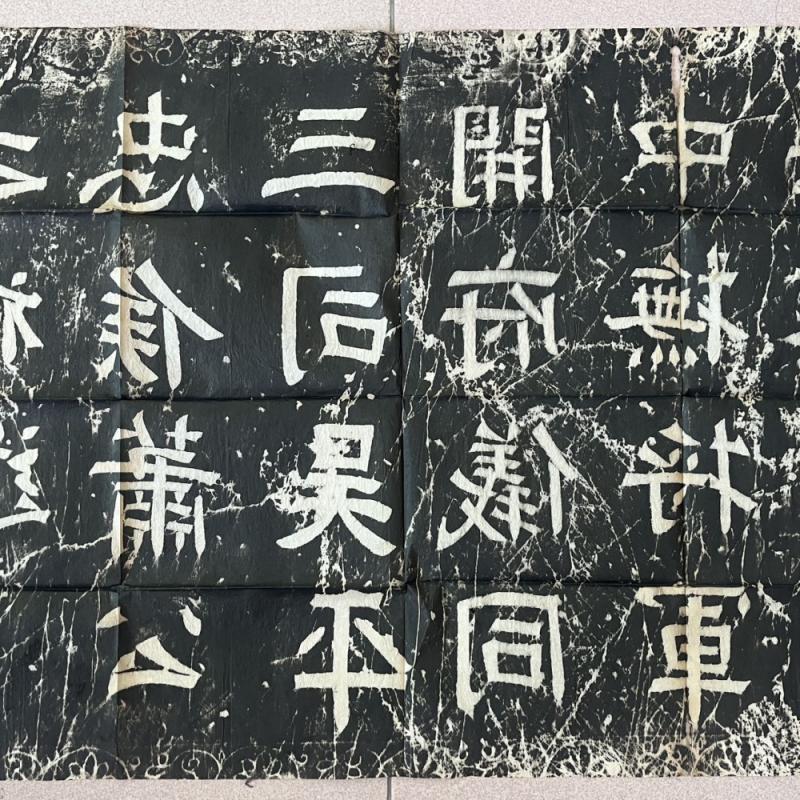 中撫将軍
開府儀同
三司吳平
忠侯蕭公